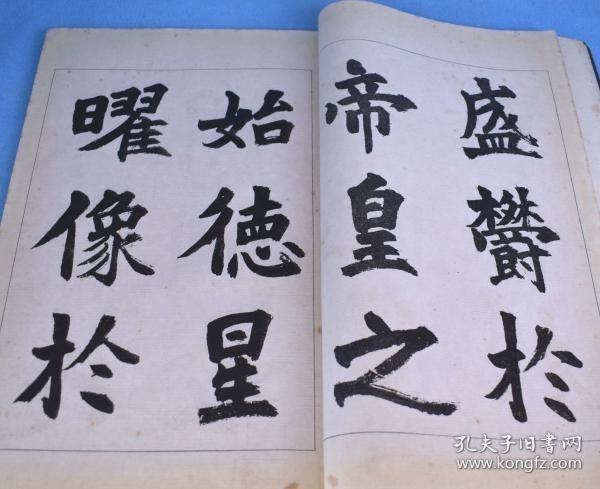 盛欝於
帝皇之
始徳星
曜像於
孔夫子旧书网
www.kongfz.com